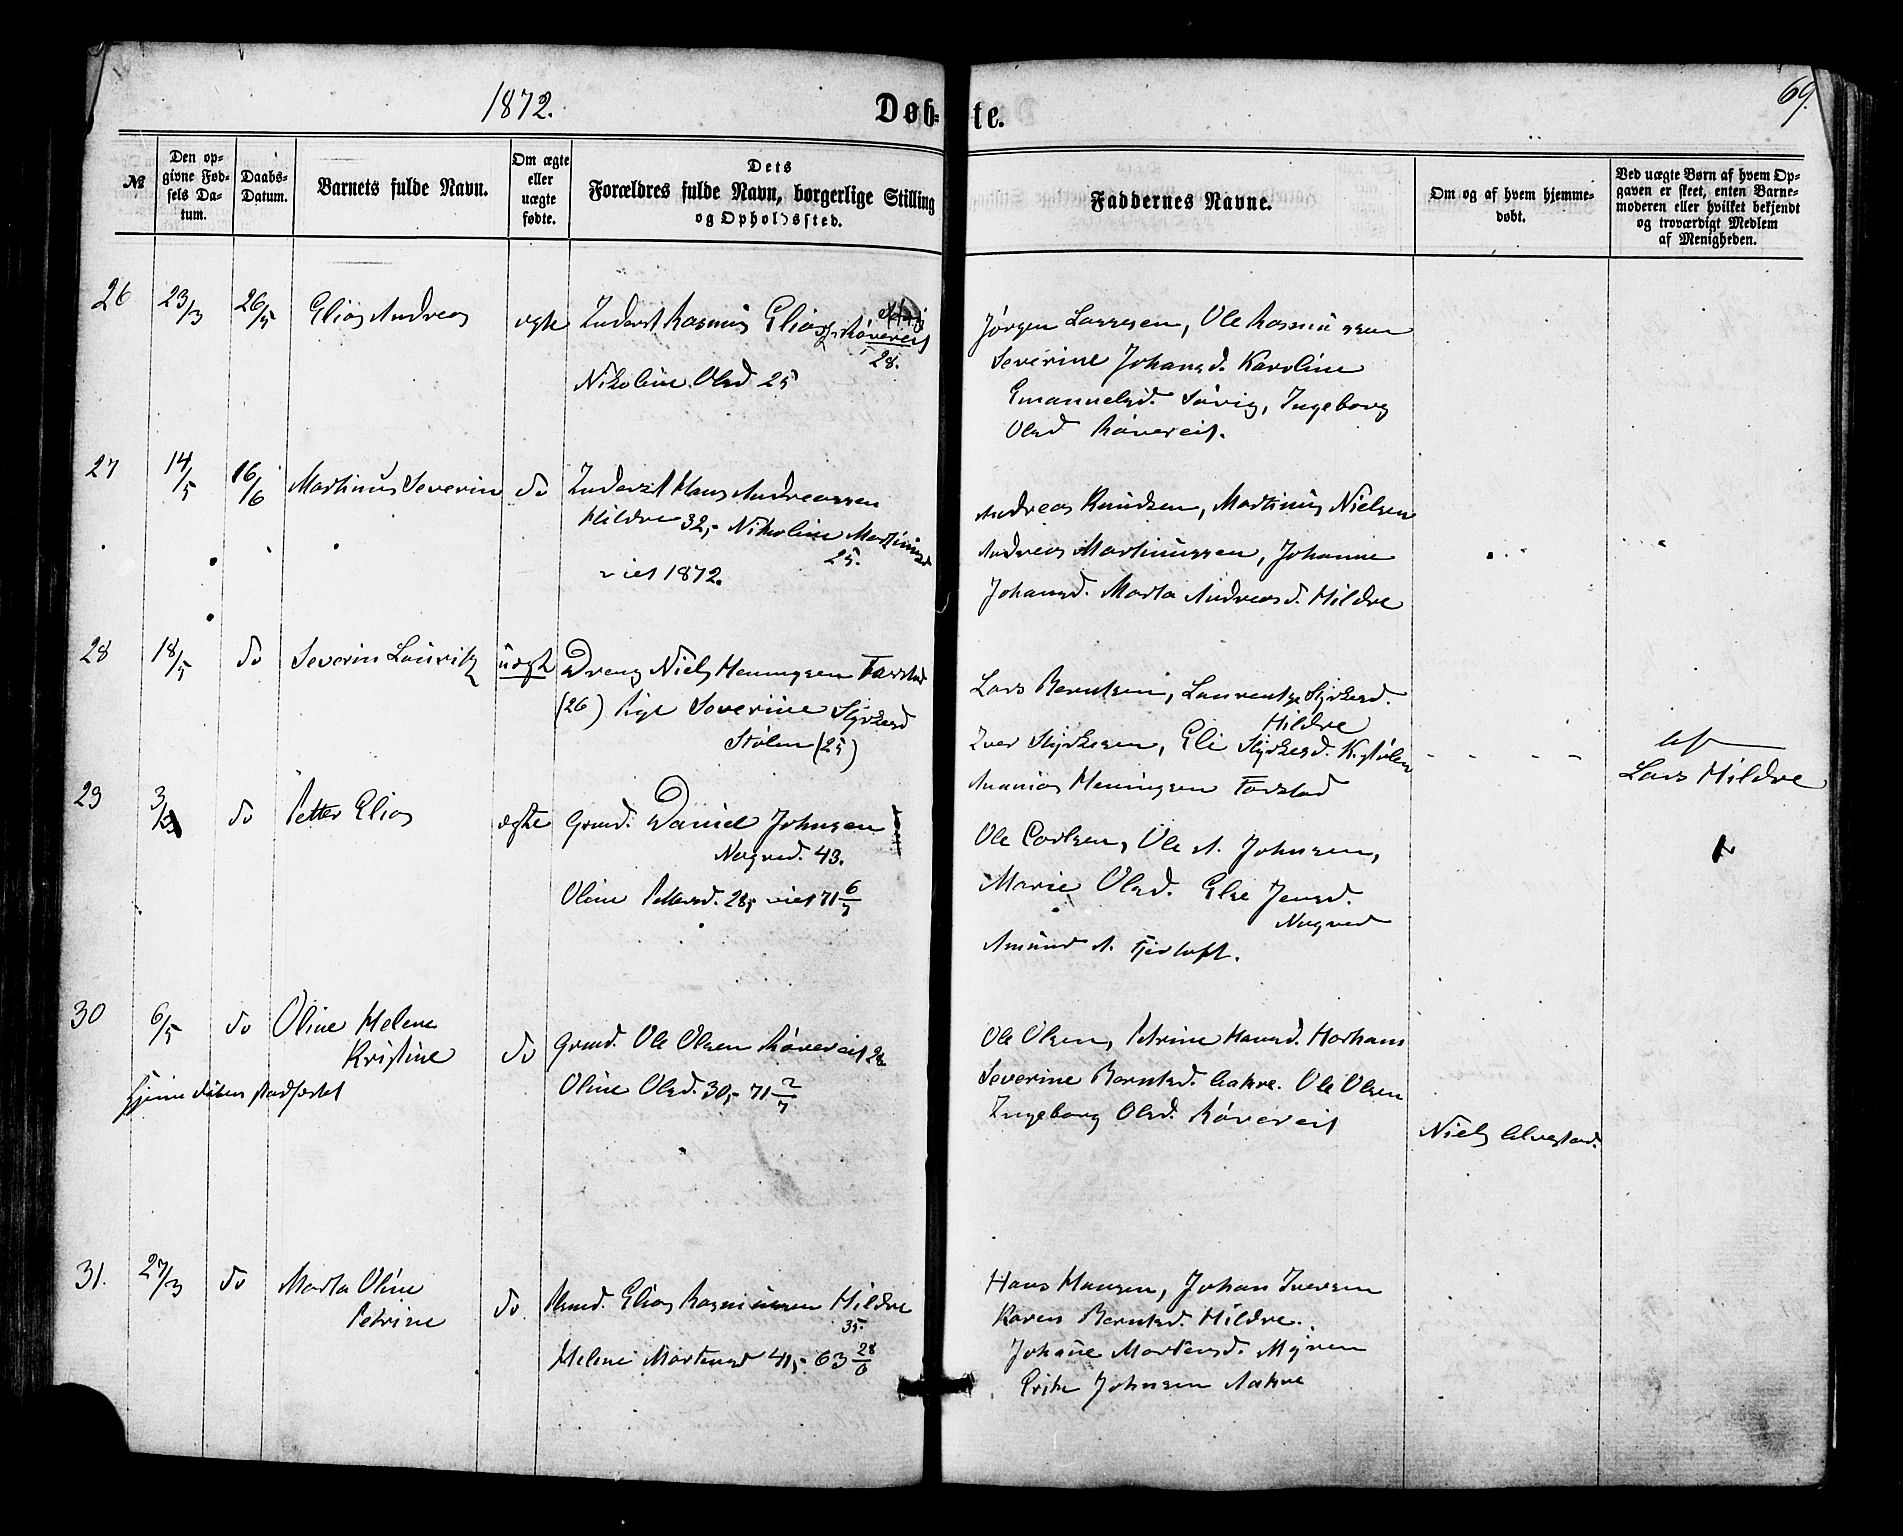 1872.
Døb-
te.
69.
№
Den op-
givne Fød-
sels Da-
tum.
Daabs-
Datum.
Barnets fulde Navn.
Om ægte
eller
uægte
fødte.
Dets
Forældres fulde Navn, borgerlige Stilling
og Opholdssted.
Faddernes Navne.
Om og af hvem hjemme-
døbt.
Ved uægte Børn af hvem Op-
gaven er skeet, enten Barne-
moderen eller hvilket bekjendt
og troværdigt Medlem
af Menigheden.
26 23/3 26/5 Elias Andreas ægte Inderst Rasmus Elias Røvereit
28.
Nikoline Olsd 25
Jørgen Larssen, Ole Rasmussen
Severine Johansd. Karoline
Emanuelsd. Søvig, Ingeborg
Olsd Røvereit.
27 14/5 16/6 Martinus Severin do Inderst Hans Andreassen
Hildre 32,- Nikoline Martinusd
25.
viet 1872.
Andreas Knudsen, Martinus Nielsen
Andreas Martinussen, Johanne
Johansd. Marta Andreasd. Hildre
28 18/5 do Severin Lauritz uægte Dreng Niels Henningsen Farstad
(26) Pige Severine Styrkesd
Stølen (25)
Lars Berntsen, Laurentse Styrkesd.
Hildre
Iver Styrkesen, Eli Styrkesd. K.stølen
Ananias Henningsen Farstad
af
Lars Hildre
29 3/ do Petter Elias ægte Grmd. Daniel Johnsen
Nogved. 43.
Oline Pettersd. 28,- viet 71 6/7
Ole Carlsen, Ole A. Johnsen,
Marie Olsd. Else Jensd.
Nogved
Amund A. Fjørtoft.
30 6/5 do Oline Helene
Kristine
do Grmd. Ole Olsen Røvereit 28
Oline Olsd. 30,- 71 2/7
hjemmedaaben stadfæstet
Ole Olsen, Petrine Hansd. Harhams
Severine Berntsd. Aakre. Ole Olsen
Ingeborg Olsd. Røvereit
Niels Alvestad.
31. 27/3 do Marta Oline
Petrine
do Elias Rasmussen Hildre
35.
Helene Mortensd 41,- 63 28/6
Hans Hansen, Johan Iversen
Karen Berntsd. Hildre.
Johanne Mortensd. Myren
Johnsen Aakre